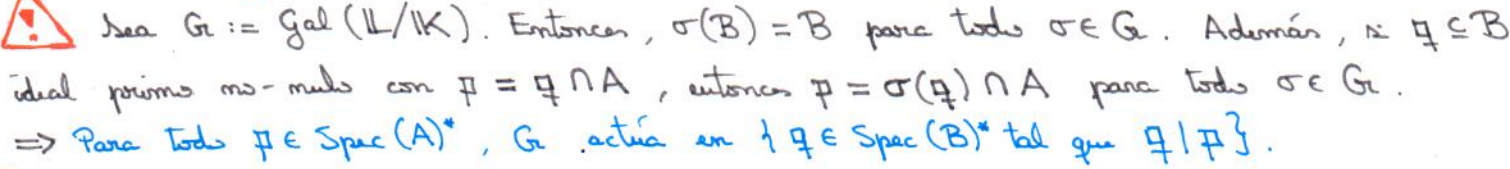 ! Sea G := Gal(𝕃/𝕂). Entonces, σ(B) = B para todo σ ∈ G. Además, si 𝔮 ⊆ B
ideal primo no-nulo con 𝔭 = 𝔮 ∩ A, entonces 𝔭 = σ(𝔮) ∩ A para todo σ ∈ G.
⇒ Para todo 𝔭 ∈ Spec(A)*, G actúa en { 𝔮 ∈ Spec(B)* tal que 𝔮 | 𝔭 }.